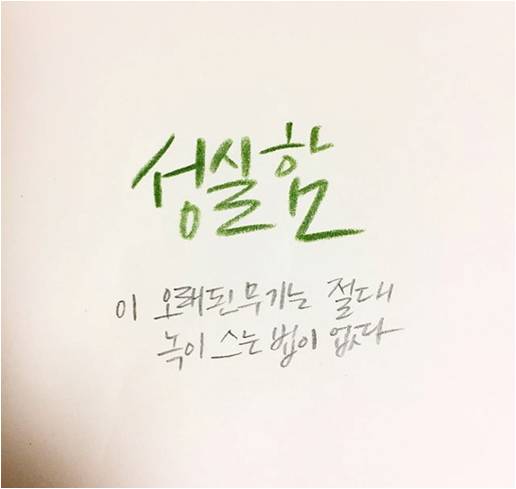 성실함
이 오래된 무기는 절대
녹이 스는 법이 없다